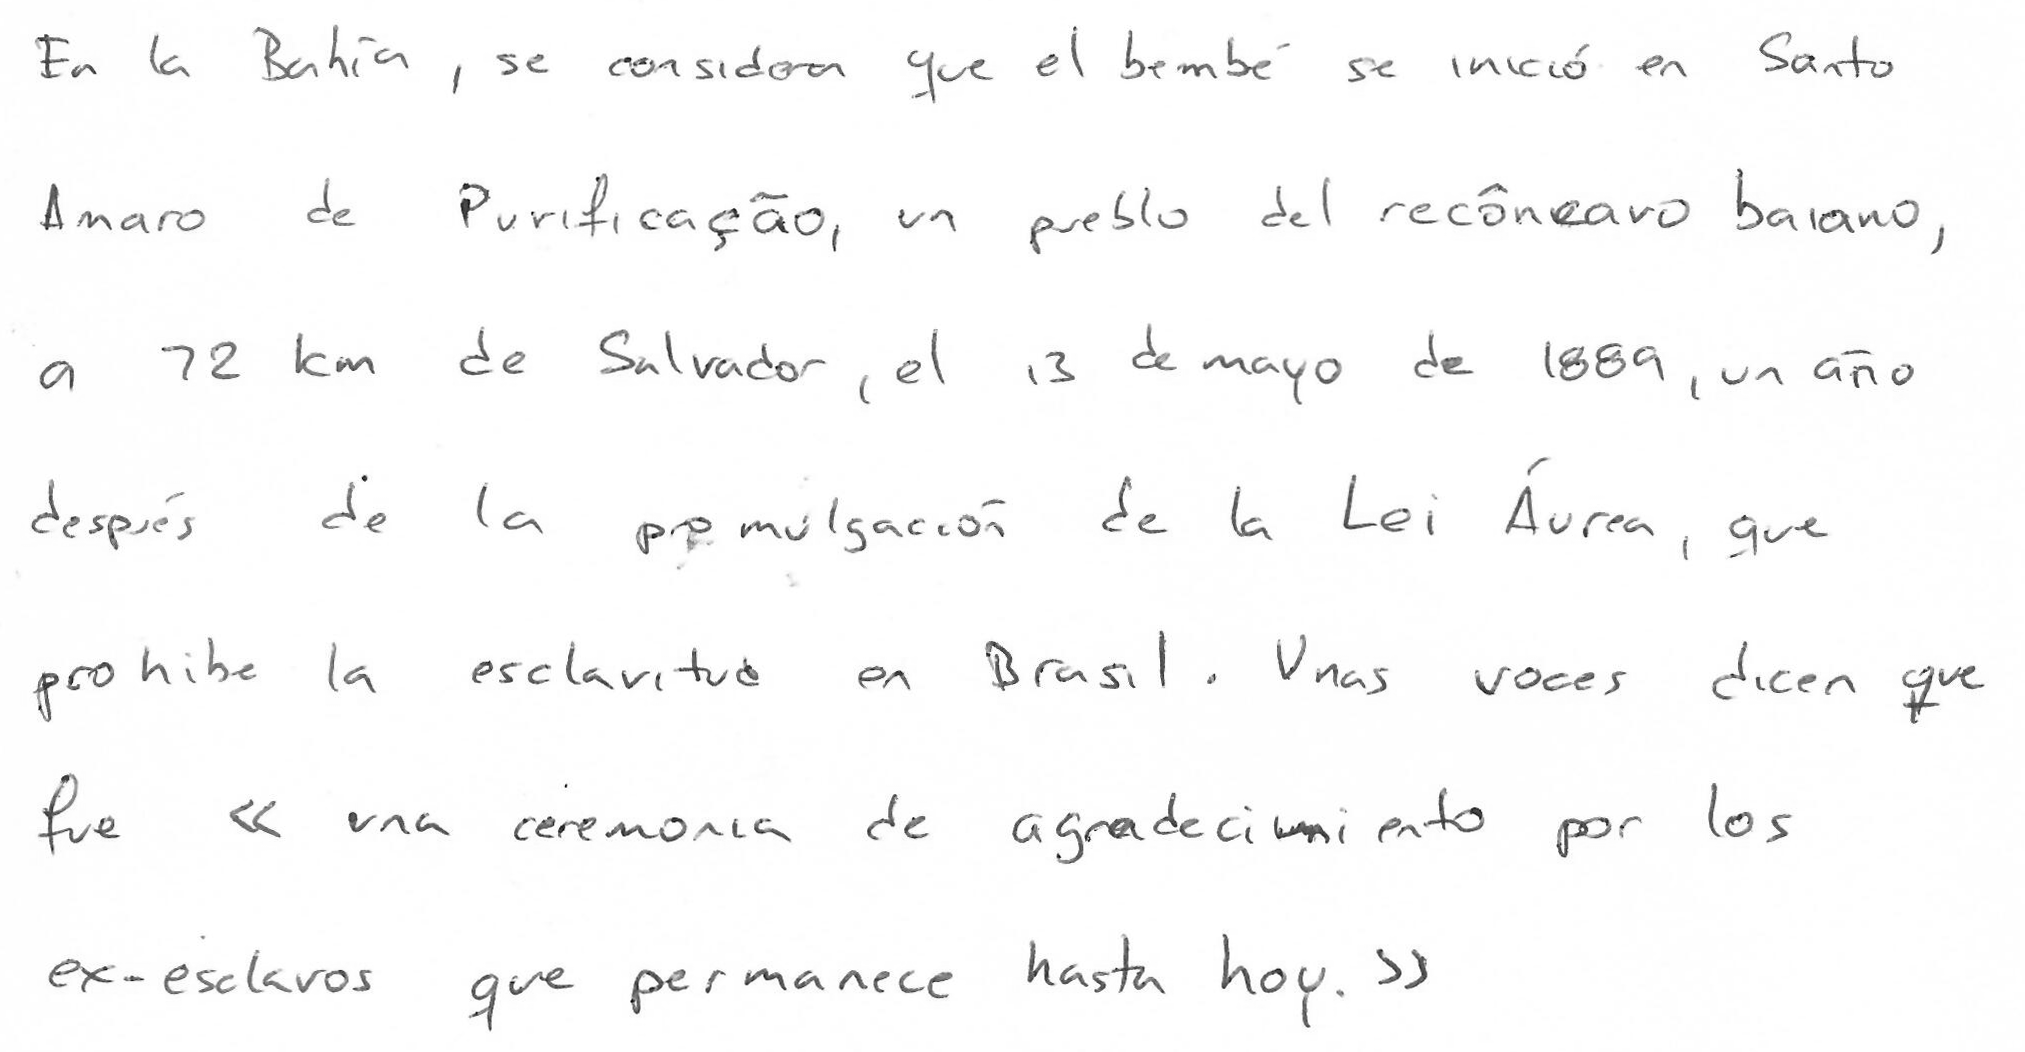 En la Bahía, se considera que el bembé se inició en Santo
Amaro de Purificação, un pueblo del recôncavo baiano,
a 72 km de Salvador, el 13 de mayo de 1889, un año
después de la promulgación de la Lei Áurea, que
prohibe la esclavitud en Brasil. Unas voces dicen que
fue << una ceremonia de agradecimiento por los
ex-esclavos que permanece hasta hoy. >>